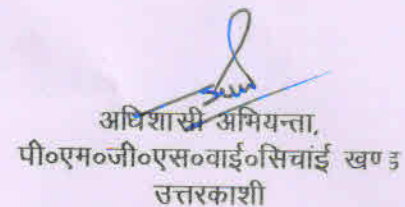 अधिशासी अभियन्ता,
पी०एम०जी०एस०वाई०सिचांई खण्ड
उत्तरकाशी